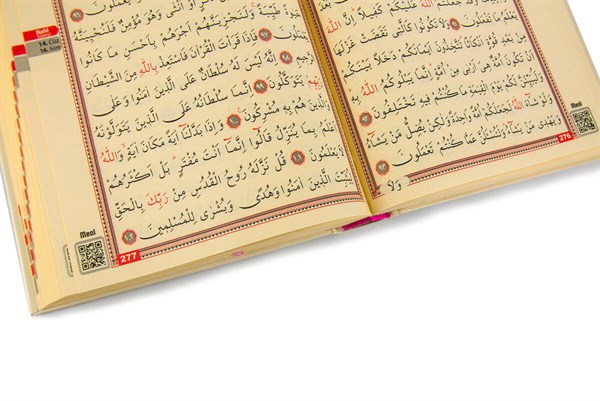 عَلَيْكُمْ كَفِيلًا اِنَّ اللّٰهَ
يَعْلَمُ مَا تَفْعَلُونَ ﴿٩١﴾ وَلَا تَكُونُوا كَالَّتِي نَقَضَتْ غَزْلَهَا
مِنْ بَعْدِ قُوَّةٍ اَنْكَاثًا تَتَّخِذُونَ اَيْمَانَكُمْ دَخَلًا بَيْنَكُمْ
اَنْ تَكُونَ اُمَّةٌ هِيَ اَرْبٰى مِنْ اُمَّةٍ اِنَّمَا يَبْلُوكُمُ اللّٰهُ
بِهِ وَلَيُبَيِّنَنَّ لَكُمْ يَوْمَ الْقِيٰمَةِ مَا كُنْتُمْ فِيهِ تَخْتَلِفُونَ ﴿٩٢﴾
وَلَوْ شَاءَ اللّٰهُ لَجَعَلَكُمْ اُمَّةً وَاحِدَةً وَلٰكِنْ يُضِلُّ مَنْ يَشَاءُ
وَيَهْدِي مَنْ يَشَاءُ وَلَتُسْـَٔلُنَّ عَمَّا كُنْتُمْ تَعْمَلُونَ ﴿٩٣﴾
وَلَا
Meal
276
Nahl
14. Cüz
16. Sûre
مِنْ ذَكَرٍ اَوْ اُنْثٰى وَهُوَ مُؤْمِنٌ فَلَنُحْيِيَنَّهُ
حَيٰوةً طَيِّبَةً وَلَنَجْزِيَنَّهُمْ اَجْرَهُمْ بِاَحْسَنِ مَا كَانُوا
يَعْمَلُونَ ﴿٩٧﴾ فَاِذَا قَرَأْتَ الْقُرْاٰنَ فَاسْتَعِذْ بِاللّٰهِ مِنَ الشَّيْطَانِ
الرَّجِيمِ ﴿٩٨﴾ اِنَّهُ لَيْسَ لَهُ سُلْطَانٌ عَلَى الَّذِينَ اٰمَنُوا وَعَلٰى
رَبِّهِمْ يَتَوَكَّلُونَ ﴿٩٩﴾ اِنَّمَا سُلْطَانُهُ عَلَى الَّذِينَ يَتَوَلَّوْنَهُ
وَالَّذِينَ هُمْ بِهِ مُشْرِكُونَ ﴿١٠٠﴾ وَاِذَا بَدَّلْنَا اٰيَةً مَكَانَ اٰيَةٍ وَاللّٰهُ
اَعْلَمُ بِمَا يُنَزِّلُ قَالُوا اِنَّمَا اَنْتَ مُفْتَرٍ بَلْ اَكْثَرُهُمْ
لَا يَعْلَمُونَ ﴿١٠١﴾ قُلْ نَزَّلَهُ رُوحُ الْقُدُسِ مِنْ رَبِّكَ بِالْحَقِّ
لِيُثَبِّتَ الَّذِينَ اٰمَنُوا وَهُدًى وَبُشْرٰى لِلْمُسْلِمِينَ ﴿١٠٢﴾
Meal
277